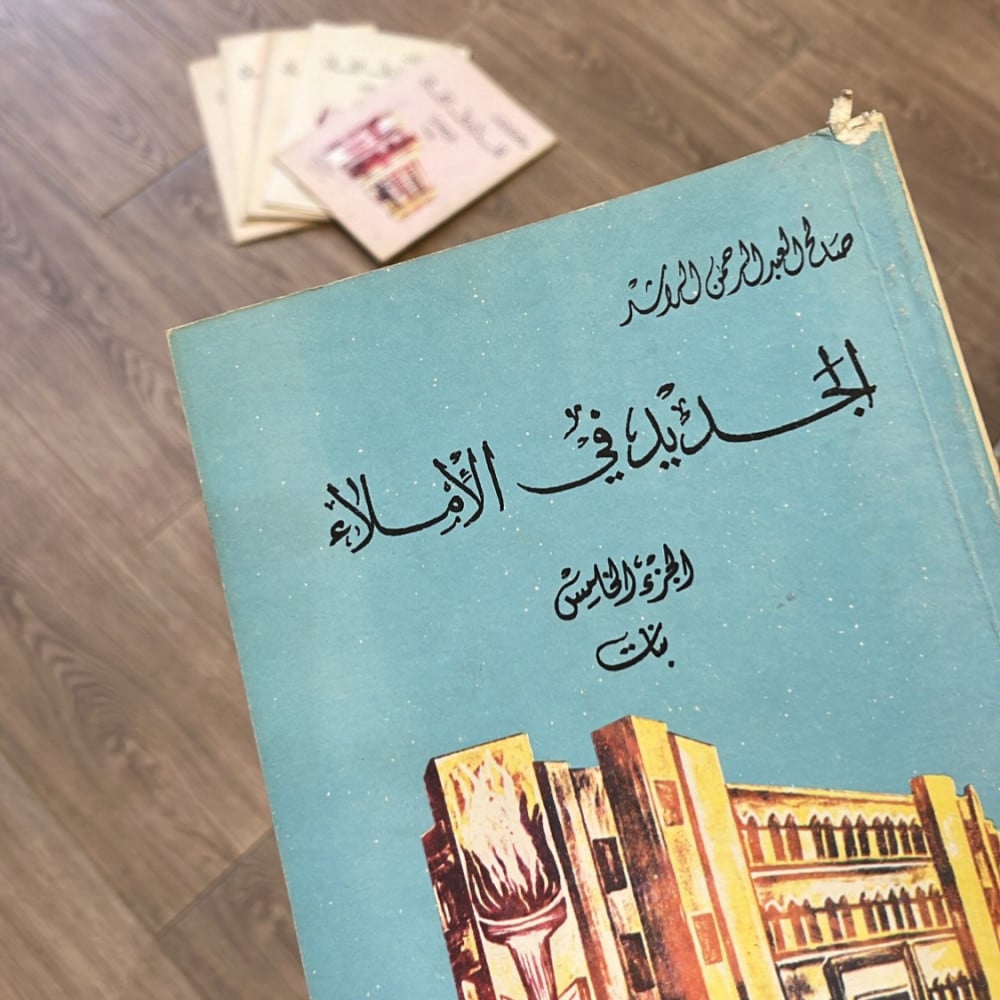 صالح العبد الرحمن الراشد
الجديد في الأملاء
الجزء الخامس
بنات